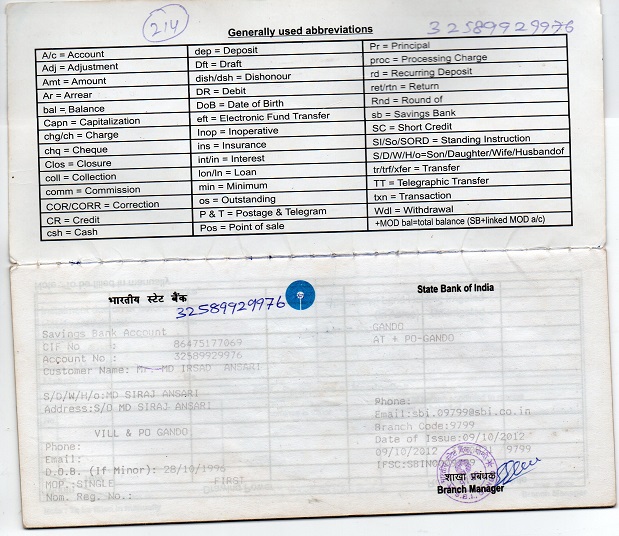 214
Generally used abbreviations
32589929976
A/c = Account
Adj = Adjustment
Amt = Amount
Ar = Arrear
bal = Balance
Capn = Capitalization
chg/ch = Charge
chq = Cheque
Clos = Closure
coll = Collection
comm = Commission
COR/CORR = Correction
CR = Credit
csh = Cash
dep = Deposit
Dft = Draft
dish/dsh = Dishonour
DR = Debit
DoB = Date of Birth
eft = Electronic Fund Transfer
Inop = Inoperative
ins = Insurance
int/in = Interest
lon/ln = Loan
min = Minimum
os = Outstanding
P & T = Postage & Telegram
Pos = Point of sale
Pr = Principal
proc = Processing Charge
rd = Recurring Deposit
ret/rtn = Return
Rnd = Round of
sb = Savings Bank
SC = Short Credit
SI/So/SORD = Standing Instruction
S/D/W/H/o=Son/Daughter/Wife/Husbandof
tr/trf/xfer = Transfer
TT = Telegraphic Transfer
txn = Transaction
Wdl = Withdrawal
+MOD bal=total balance (SB+linked MOD a/c)
भारतीय स्टेट बैंक
32589929976
State Bank of India
Savings Bank Account
CIF No : 86475177069
Account No : 32589929976
Customer Name: Mr. MD IRSAD ANSARI
S/D/W/H/o:MD SIRAJ ANSARI
Address:S/O MD SIRAJ ANSARI
VILL & PO GANDO
Phone:
Email:
D.O.B. (If Minor): 28/10/1996
MOP:SINGLE FIRST
Nom. Reg. No.:
GANDO
AT + PO-GANDO
Phone:
Email:sbi.09799@sbi.co.in
Branch Code:9799
Date of Issue:09/10/2012
09/10/2012 9799
IFSC:SBIN0
शाखा प्रबंधक
Branch Manager